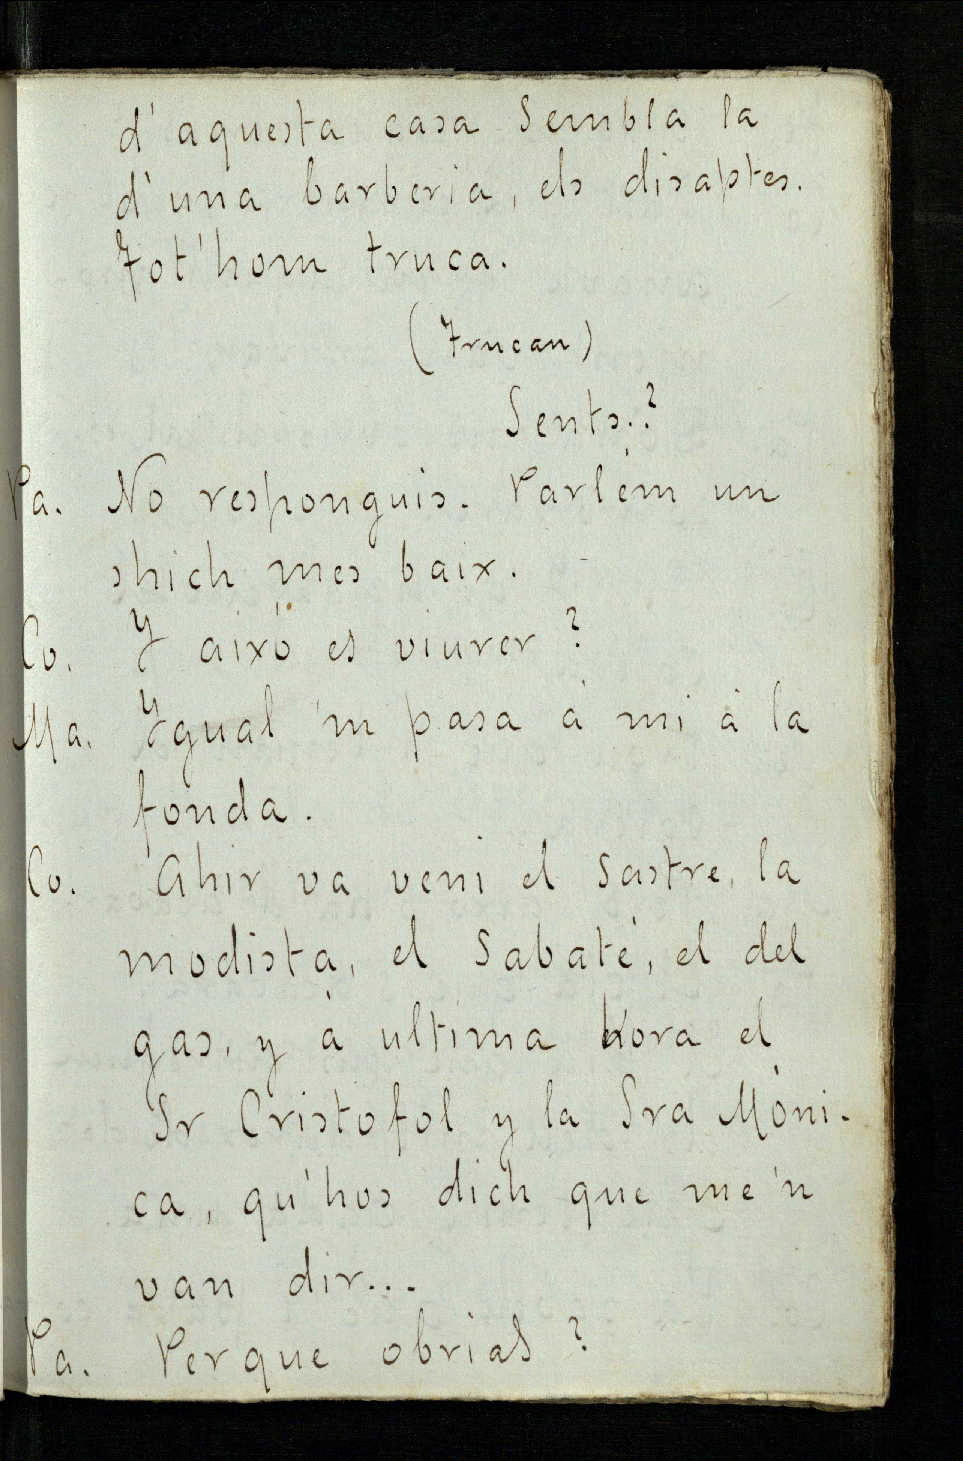 d'aquesta casa sembla la
d'una barberia, els disaptes.
Tot'hom truca.
(Trucan)
Sents.?
Pa. No responguis. Parlém un
shich mes baix.
Co. Y aixó es viurer?
Ma. Ygual 'm pasa á mi á la
fonda.
Co. Ahir va veni el sastre, la
modista, el sabaté, el del
gas, y á ultima hora el
Sr Cristofol y la Sra Móni-
ca, qu'hos dich que me'n
van dir...
Pa. Perque obrias?